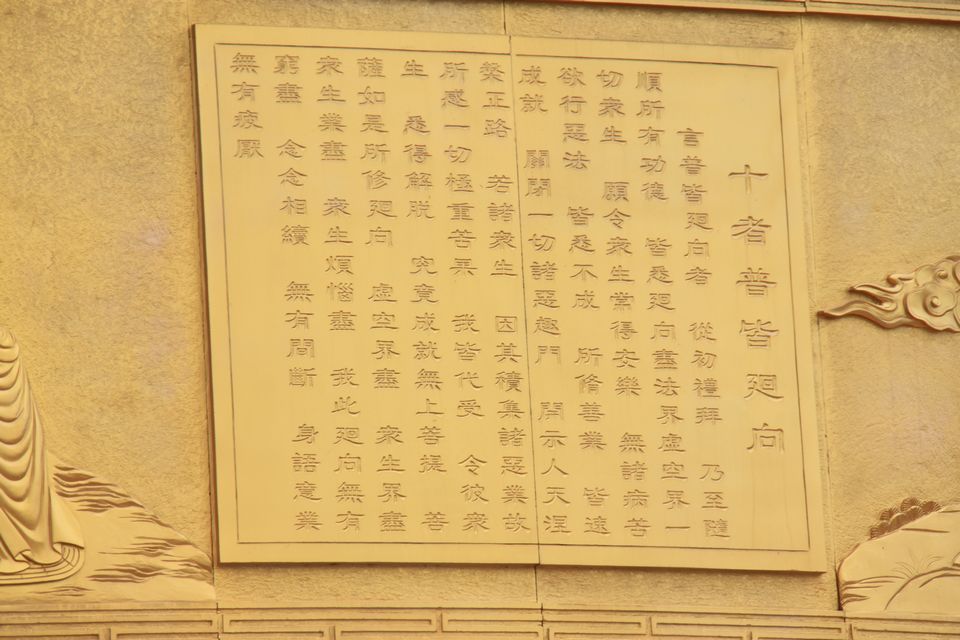 十者普皆廻向
言普皆廻向者　從初禮拜　乃至隨
順所有功德　皆悉廻向盡法界虛空界一
切衆生　願令衆生常得安樂　無諸病苦
欲行惡法　皆悉不成　所修善業　皆速
成就　關閉一切諸惡趣門　開示人天涅
槃正路　若諸衆生　因其積集諸惡業故
所感一切極重苦果　我皆代受　令彼衆
生　悉得解脱　究竟成就無上菩提　菩
薩如是所修廻向　虛空界盡　衆生界盡
衆生業盡　衆生煩惱盡　我此廻向無有
窮盡　念念相續　無有間斷　身語意業
無有疲厭